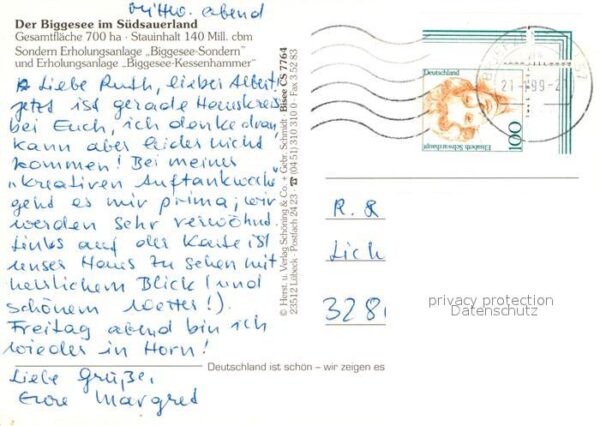 Mittw. abend
Der Biggesee im Südsauerland
Gesamtfläche 700 ha · Stauinhalt 140 Mill. cbm
Sondern Erholungsanlage „Biggesee-Sondern"
und Erholungsanlage „Biggesee-Kessenhammer"
Liebe Ruth, lieber Albert!
jetzt ist gerade Hauskreis
bei Euch, ich denke dran,
kann aber leider nicht
kommen! Bei meiner
„kreativen Auftankwoche"
geht es mir prima; wir
werden sehr verwöhnt.
Links auf der Karte ist
unser Haus zu sehen mit
herrlichem Blick (und
schönem Wetter!).
Freitag abend bin ich
wieder in Horn!
Liebe Grüße,
Eure Margret
© Herst. u. Verlag Schöning & Co. + Gebr. Schmidt · Bisee CS 7764
23512 Lübeck · Postfach 24 23 · ☎ (04 51) 310 310 0 · Fax 3 52 83
Deutschland ist schön – wir zeigen es
Deutschland
Elisabeth Schwarzhaupt
100
21
99-2
57
R. &
Lich
328
privacy protection
Datenschutz